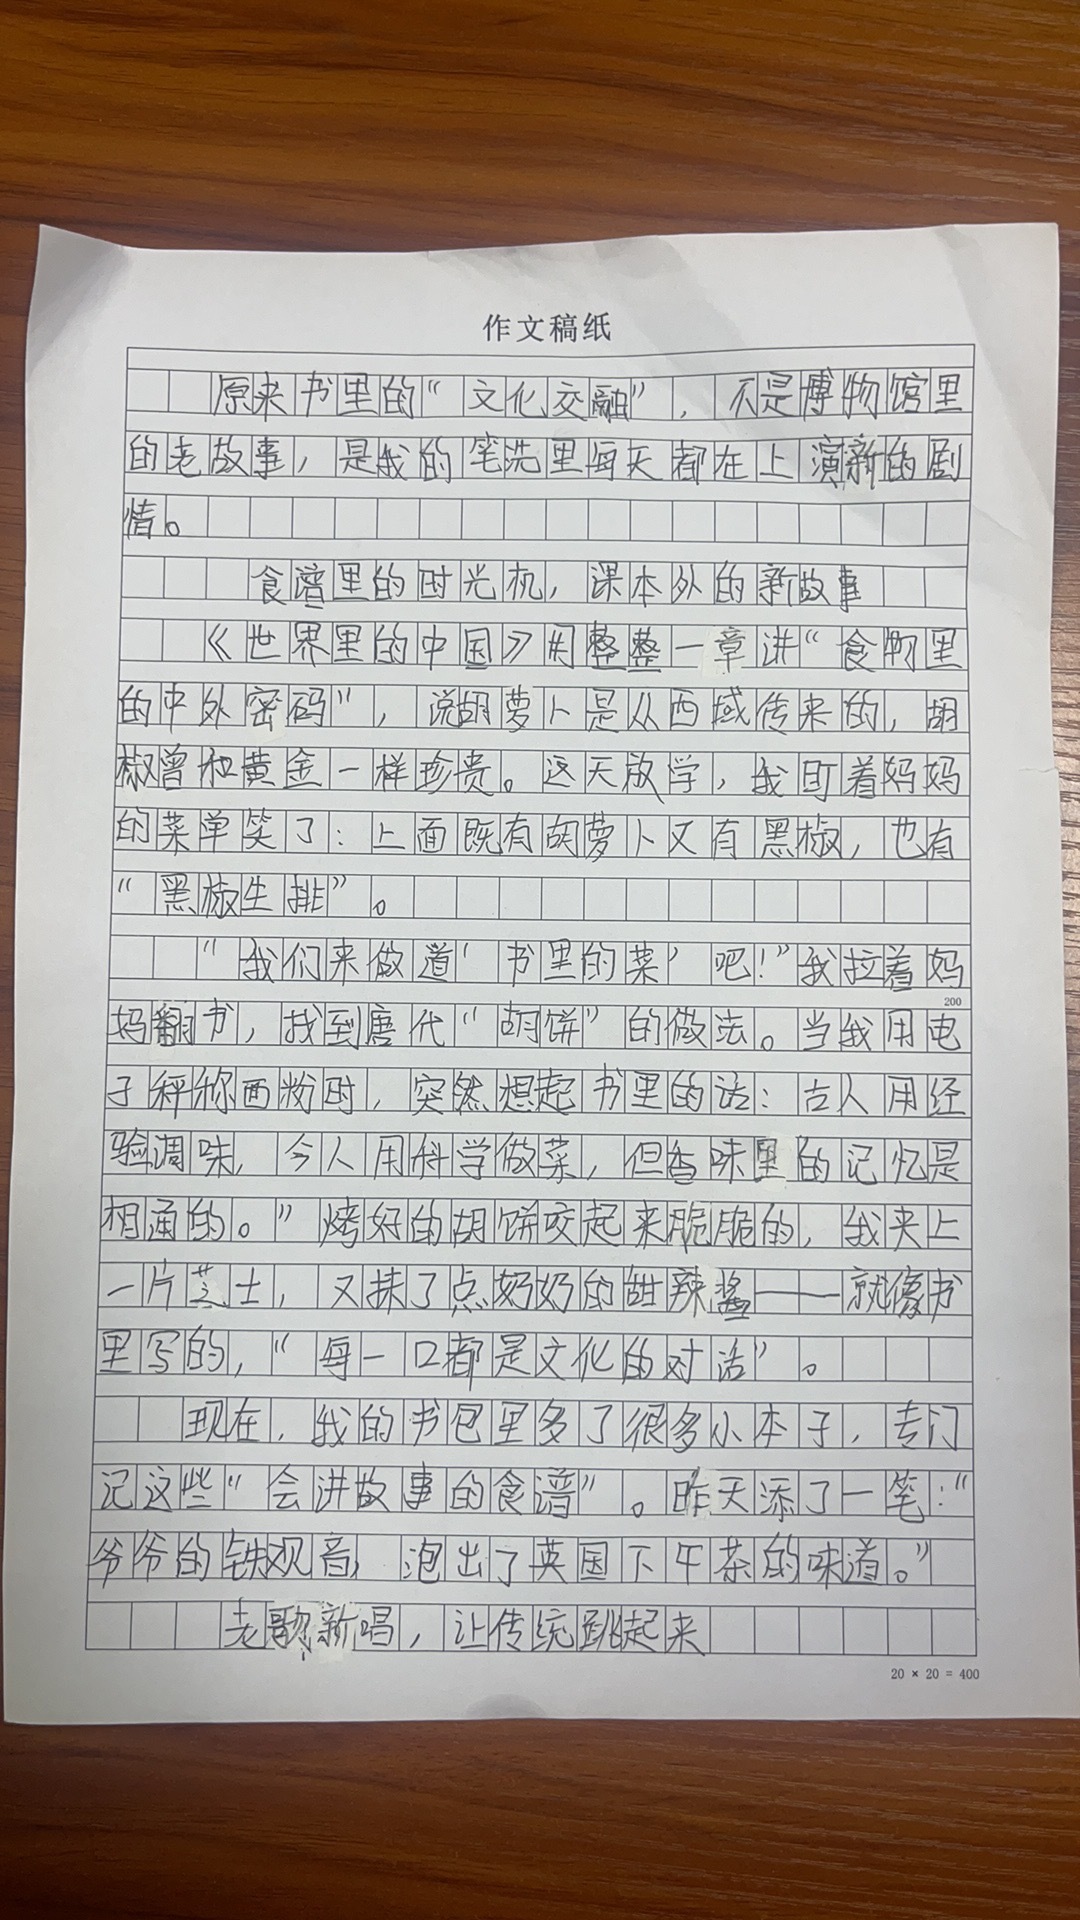 作文稿纸
原来书里的“文化交融”，不是博物馆里
的老故事，是我的笔洗里每天都在上演新的剧
情。
食谱里的时光机，课本外的新故事
《世界里的中国》用整整一章讲“食物里
的中外密码”，说胡萝卜是从西域传来的，胡
椒曾和黄金一样珍贵。这天放学，我盯着妈妈
的菜单笑了：上面既有胡萝卜又有黑椒，也有
“黑椒牛排”。
“我们来做道‘书里的菜’吧！”我拉着妈
200
妈翻书，找到唐代“胡饼”的做法。当我用电
子秤称面粉时，突然想起书里的话：古人用经
验调味，今人用科学做菜，但香味里的记忆是
相通的。”烤好的胡饼咬起来脆脆的，我夹上
一片芝士，又抹了点奶奶的甜辣酱——就像书
里写的，“每一口都是文化的对话”。
现在，我的书包里多了很多小本子，专门
记这些“会讲故事的食谱”。昨天添了一笔：“
爷爷的铁观音，泡出了英国下午茶的味道。”
老歌新唱，让传统跳起来
20 × 20 = 400